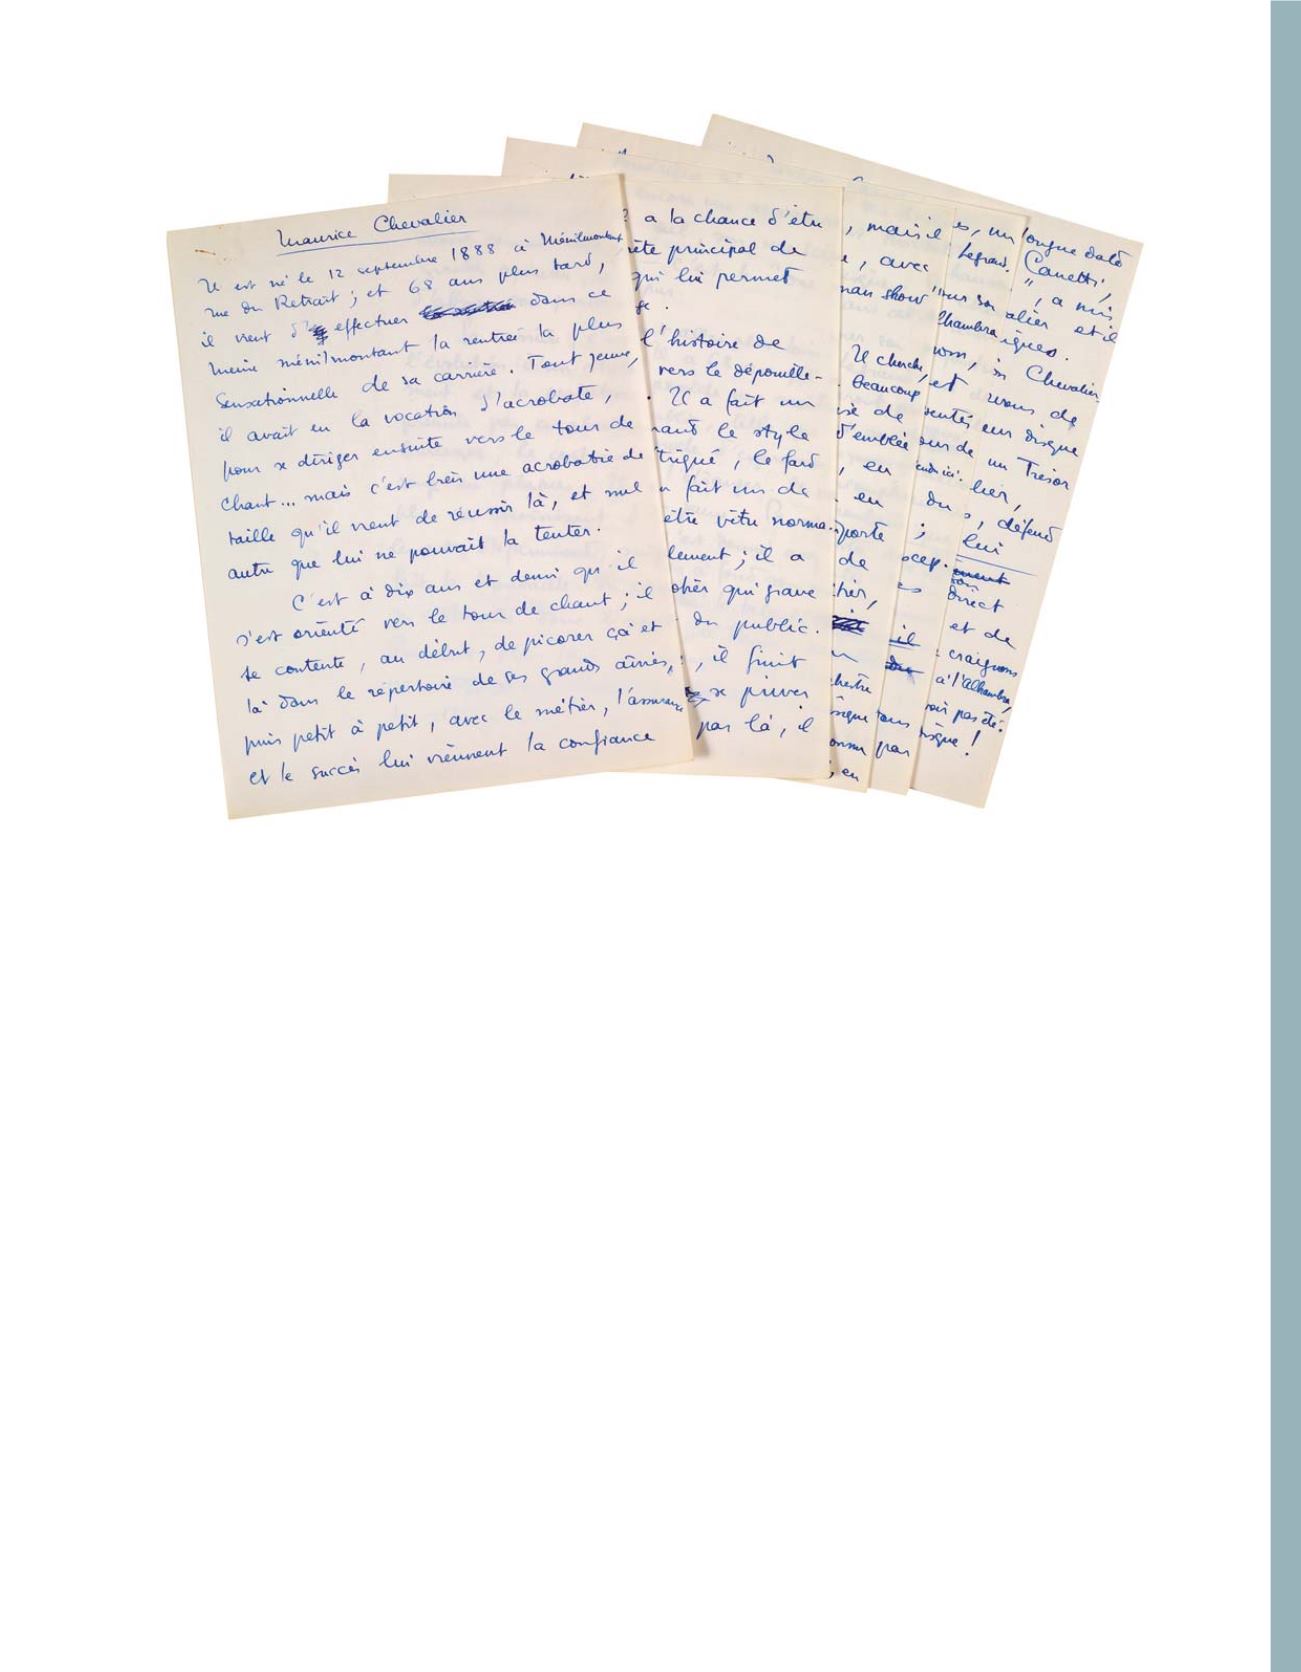 Maurice Chevalier
Il est né le 12 septembre 1888 à Ménilmontant,
rue du Retrait ; et 68 ans plus tard,
il vient d' effectuer dans ce
même ménilmontant la rentrée la plus
sensationnelle de sa carrière. Tout jeune,
il avait eu la vocation d'acrobate,
pour se diriger ensuite vers le tour de
chant... mais c'est bien une acrobatie de
taille qu'il vient de réussir là, et nul
autre que lui ne pouvait la tenter.
C'est à dix ans et demi qu'il
s'est orienté vers le tour de chant ; il
se contente, au début, de picorer çà et
là dans le répertoire de ses grands aînés,
puis petit à petit, avec le métier, l'assurance
et le succès lui viennent la confiance
a la chance d'être
ète principal de
qui lui permet
ge.
l'histoire de
vers le dépouille-
. Il a fait un
rand le style
triqué, le fard
fait un de
être vêtu norma-
lement ; il a
obier qui grave
du public.
, il finit
se priver
par là, il
, mais il
, avec
man show
Il cherche,
beaucoup
de
d'emblée
, en
en
porte
de
tier,
chestre
par
, en
s, un
Legrand.
pour sa
lhambra
et
du
;
il
tous
longue date
Canetti,
", a mis
alier et il
iques.
Chevalier
vous de
sur disque
un Trésor
lier,
s, défend
lui
son
direct
et de
craignons
à l'Alhambra,
oir pas été
isque !